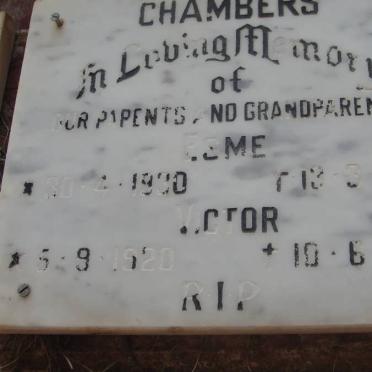 CHAMBERS
In Loving Memory
of
OUR PARENTS AND GRANDPAREN
ESME
* 30·4·1930 † 13·3
VICTOR
* 5·9·1920 † 10·6
RIP